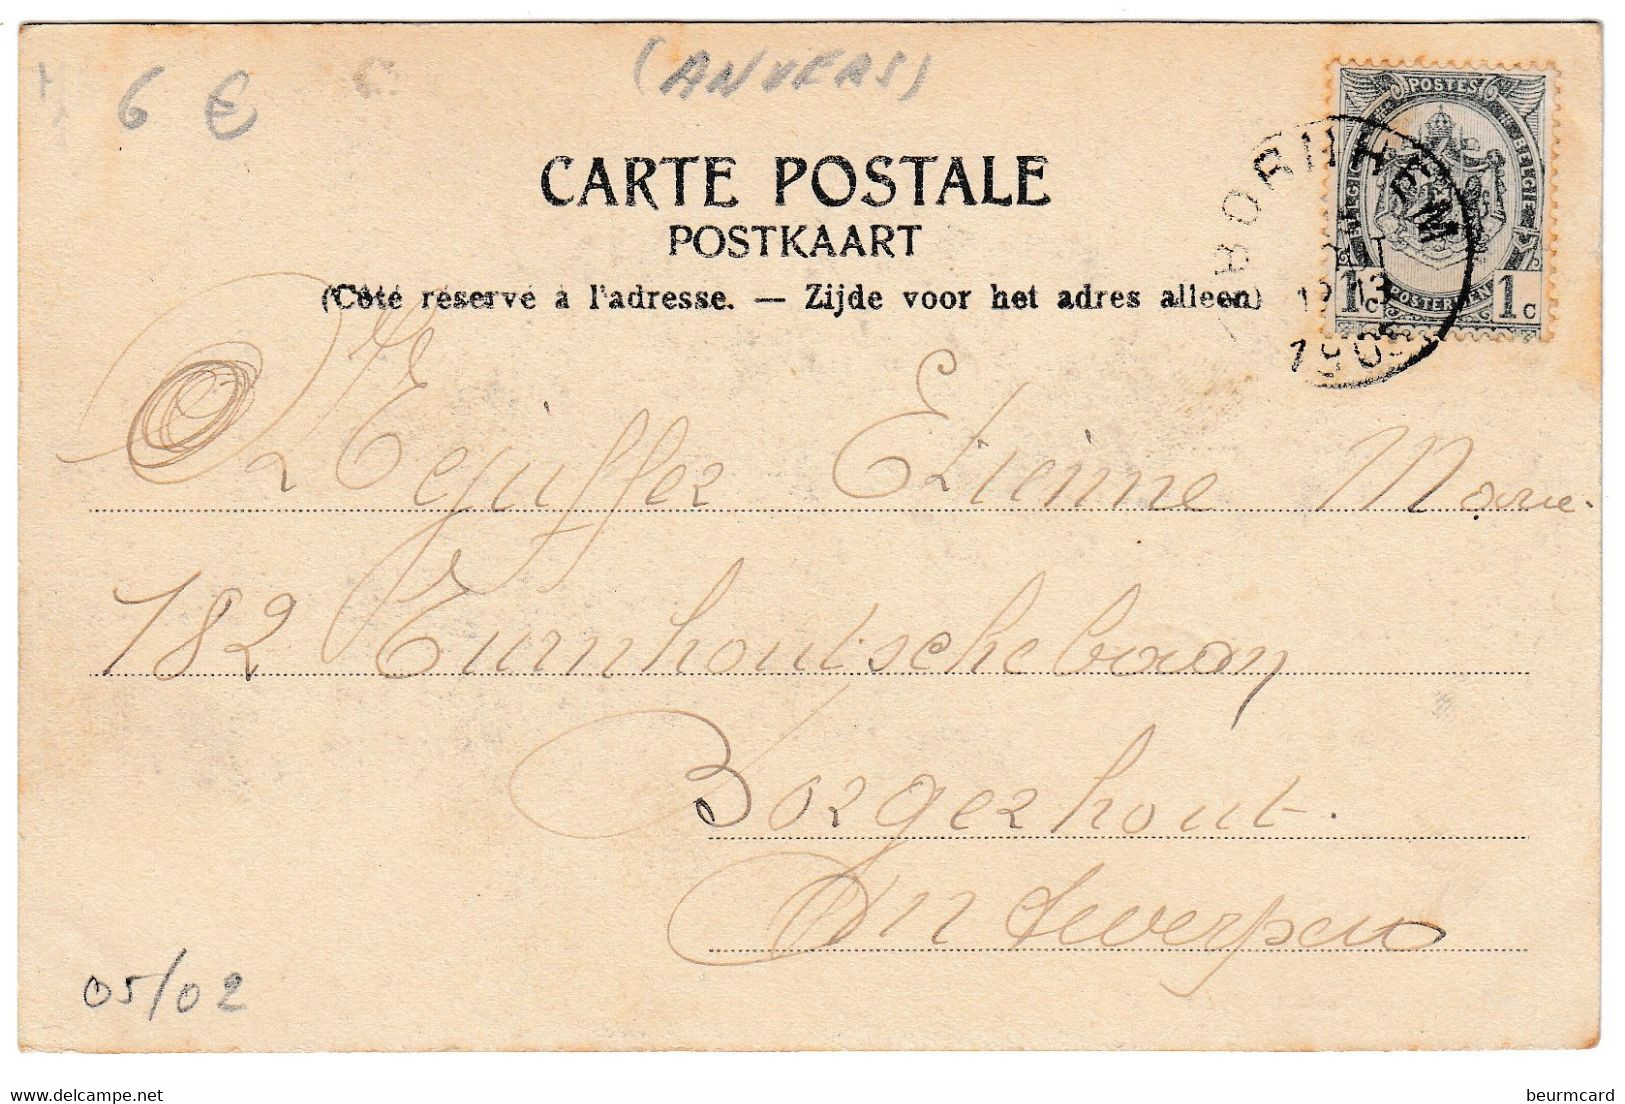 6 €
(ANVERS)
CARTE POSTALE
POSTKAART
(Côté réservé à l'adresse. — Zijde voor het adres alleen)
POSTES
BELGIQUE BELGIE
POSTERIJEN
1c 1c
1905
Mejuffer Etienne Marie.
182 Turnhoutschebaan
Borgerhout.
Antwerpen
05/02
www.delcampe.net
beurmcard